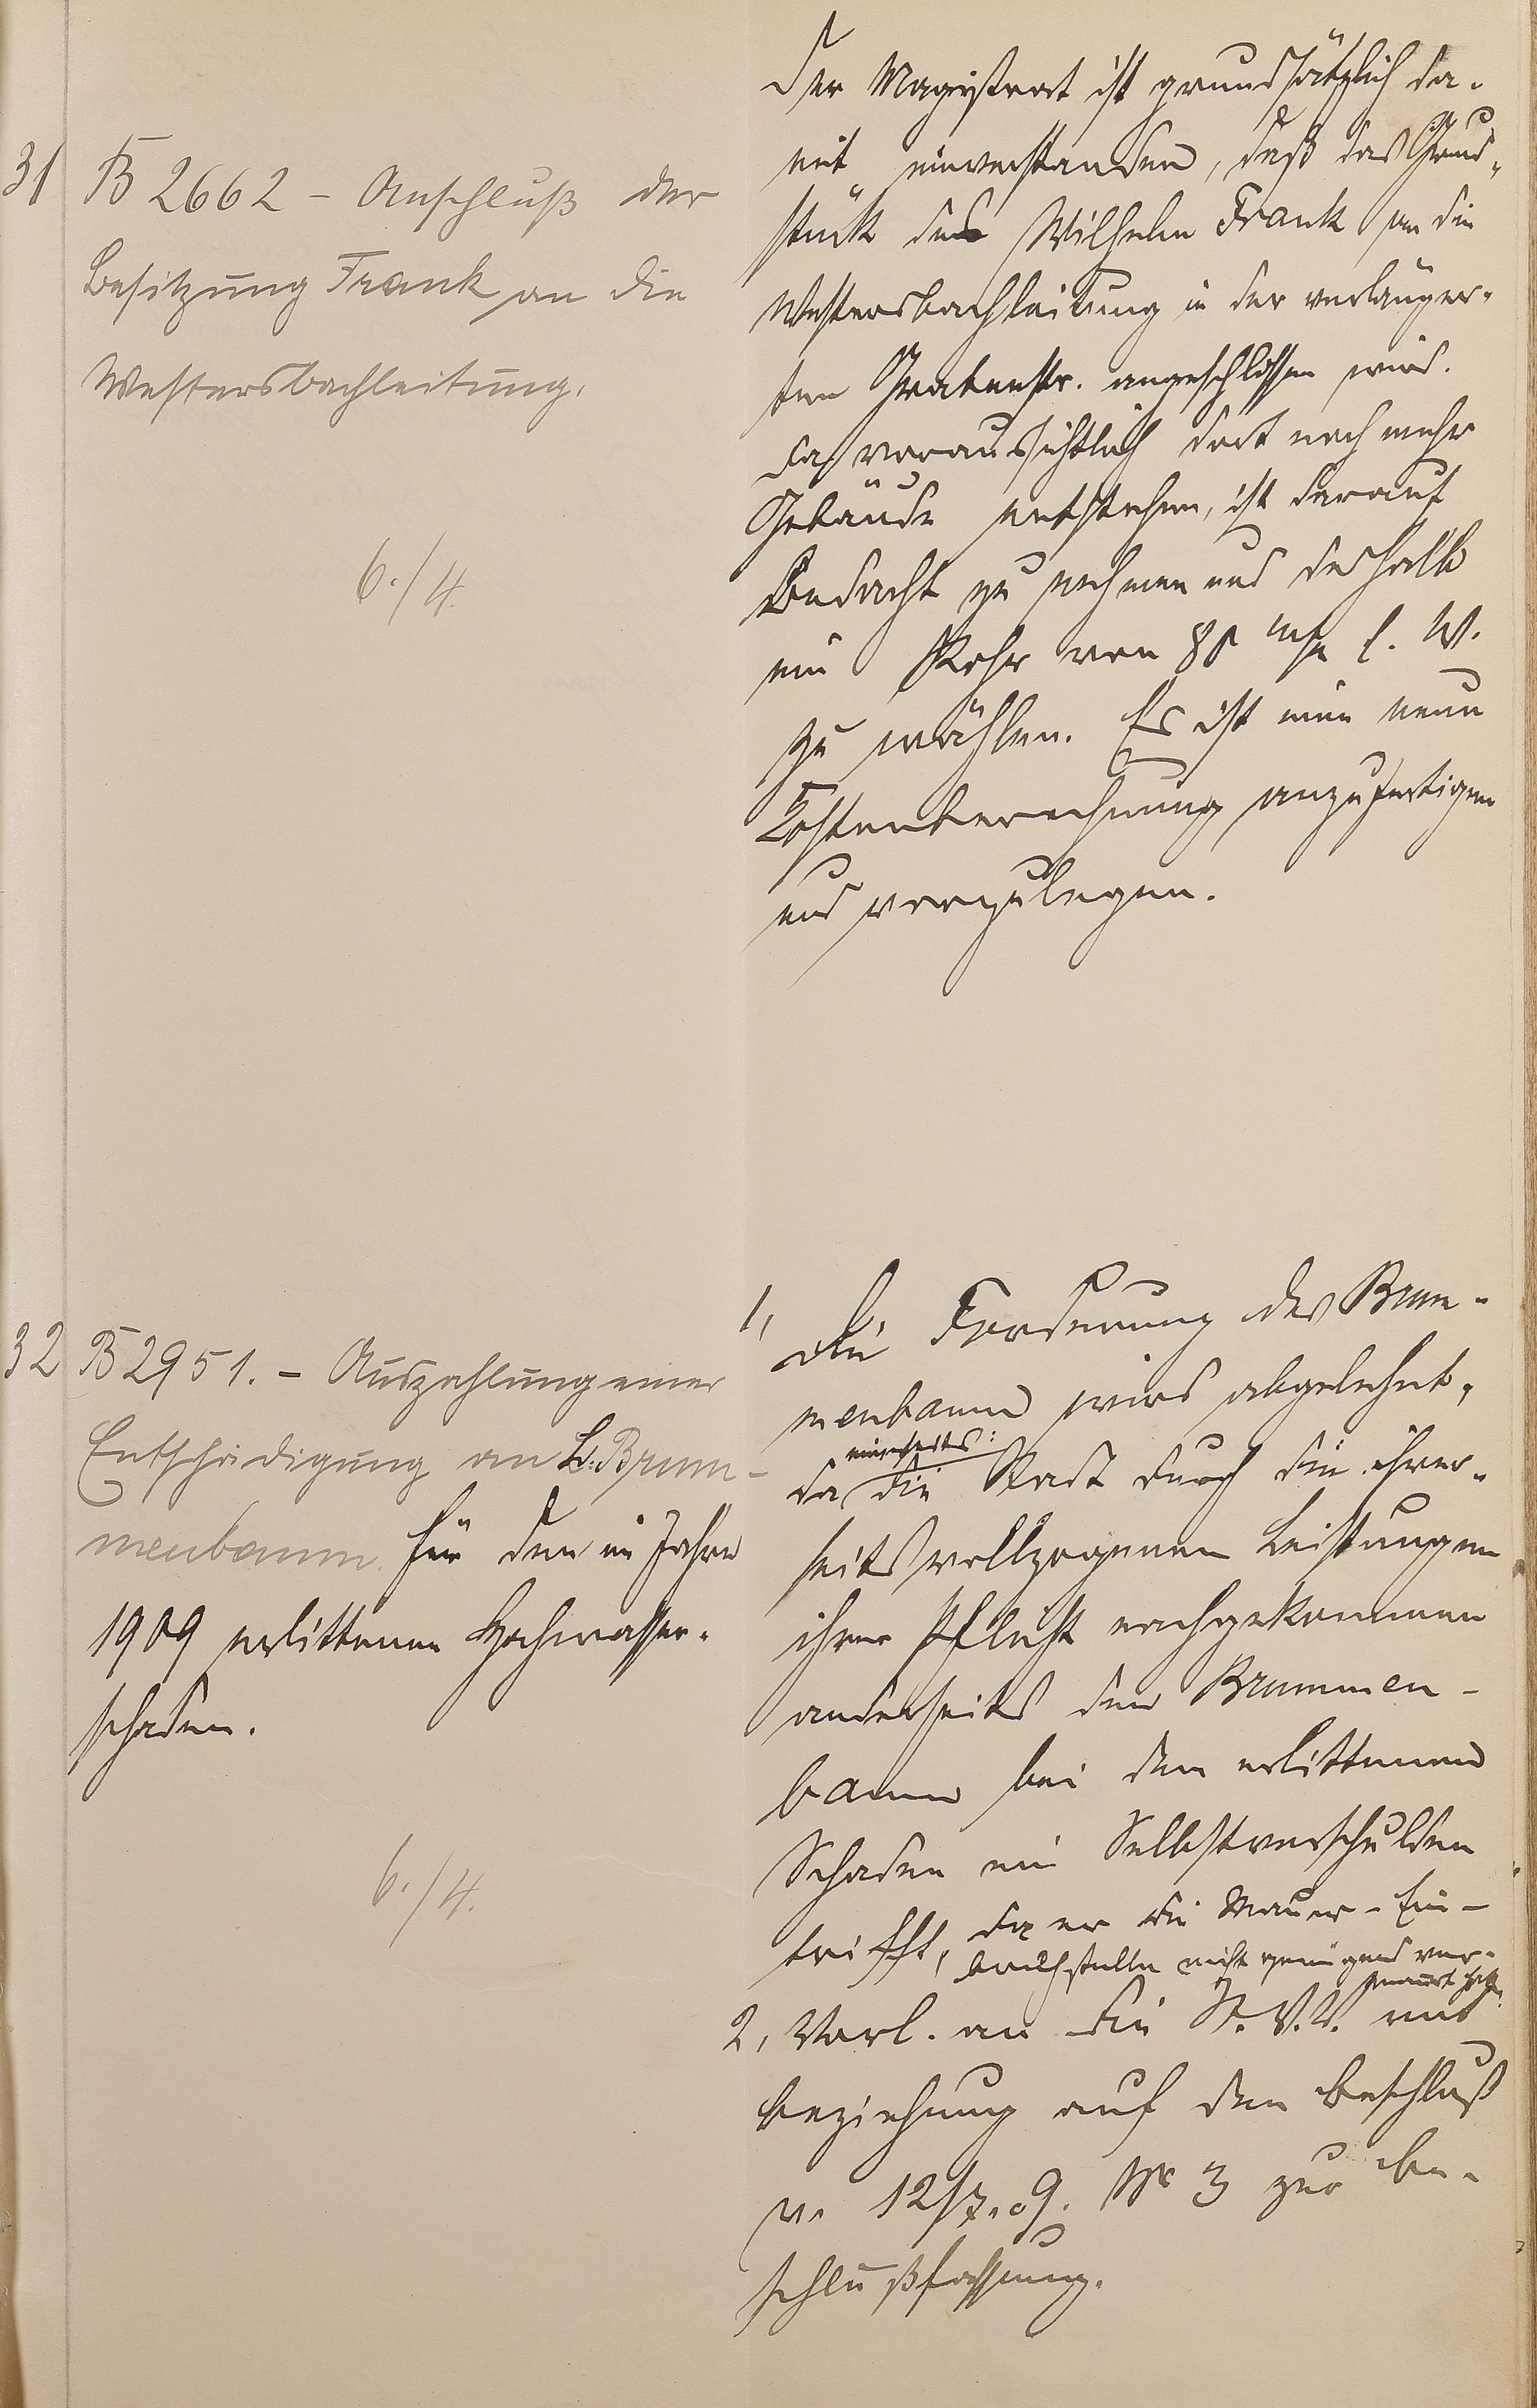 31
B 2662 - Anschluß der
Besitzung Frank an die
Westersbachleitung.
6./4.
Der Magistrat ist grundsätzlich da-
mit einverstanden, daß das Grund-
stück des Wilhelm Frank an die
Westersbachleitung in der verlänger-
ten Grabenstr. angeschlossen wird.
Da voraussichtlich dort noch mehr
Gebäude entstehen, ist darauf
Bedacht zu nehmen und deshalb
ein Rohr von 80 m/m l. W.
zu wählen. Es ist eine neue
Kostenberechnung anzufertigen
und vorzulegen.
32
B 2951. - Auszahlung einer
Entschädigung an L. Brum-
menbaum für den im Jahre
1909 erlittenen Hochwasser-
schaden.
6./4.
1, Die Forderung des Brum-
menbaum wird abgelehnt,
einerseits:
da die Stadt durch die ihrer-
seits vollzogenen Leistungen
ihrer Pflicht nachgekommen
anderseits den Brummen-
baum bei dem erlittenen
Schaden ein Selbstverschulden
trifft, da er die Mauer-Ein-
bruchstelle nicht genügend ver-
mauert hatte.
2, Vorl. an die St. V. V. mit
Beziehung auf den Beschluß
v. 12/7.09. Nr 3 zur Be-
schlußfassung.